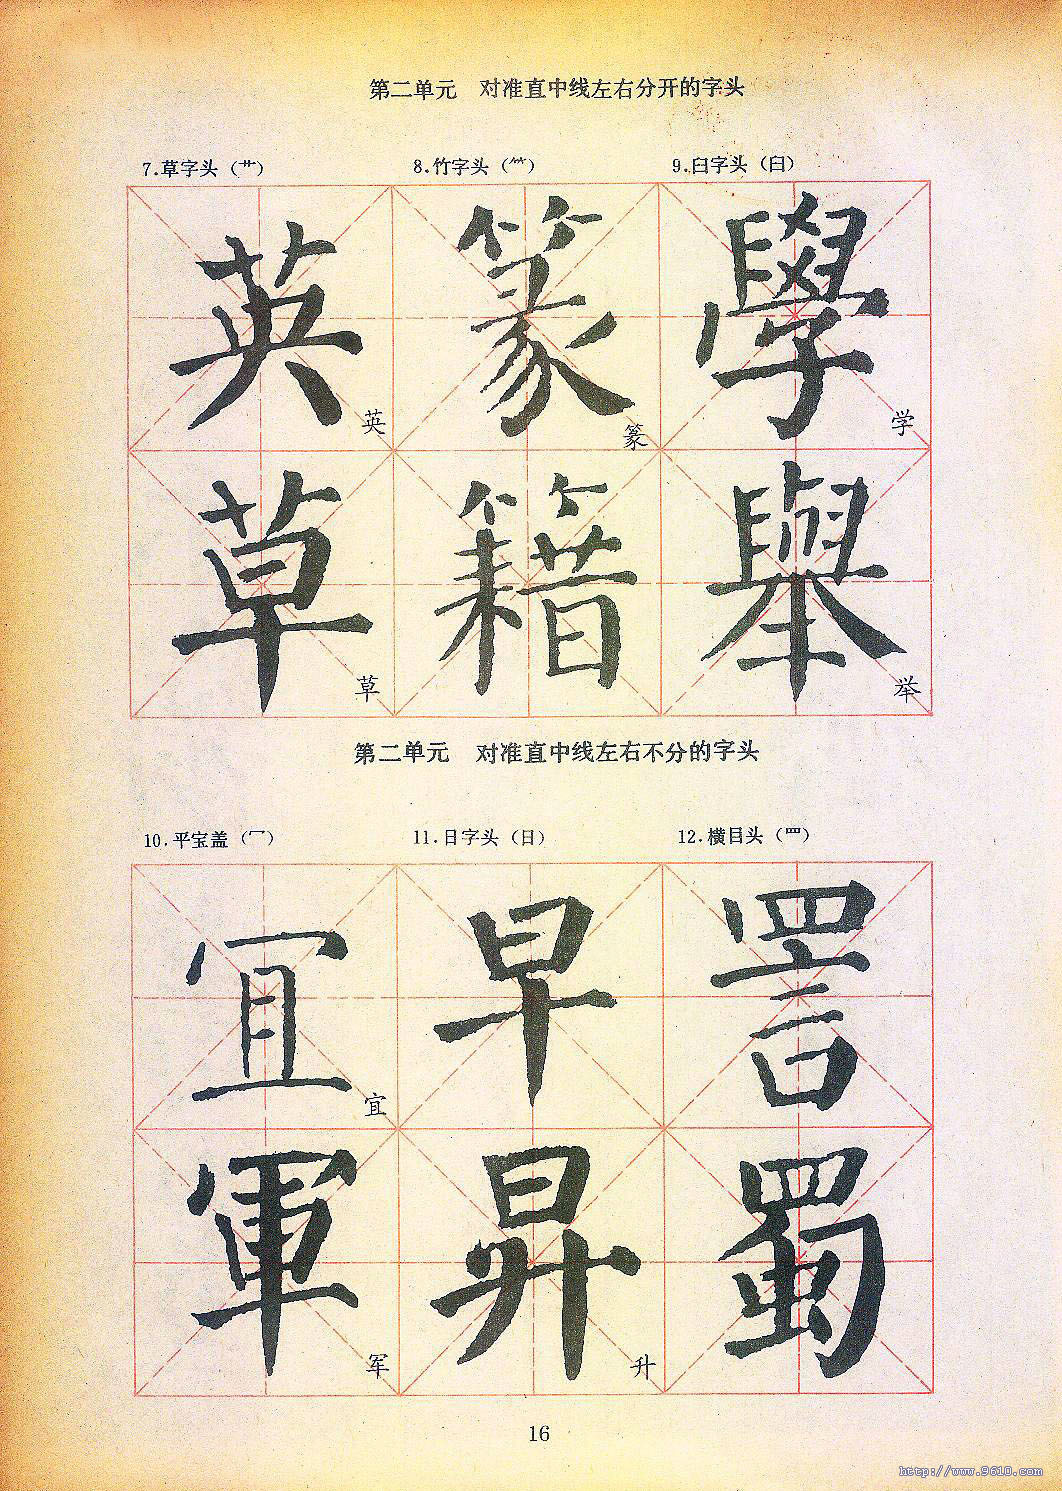 第二单元　对准直中线左右分开的字头
7.草字头（艹）　8.竹字头（⺮）　9.臼字头（臼）
英　篆　學
英　篆　学
草　籍　舉
草　举
第二单元　对准直中线左右不分的字头
10.平宝盖（冖）　11.日字头（日）　12.横目头（罒）
冝　早　詈
宜
軍　昇　蜀
军　升
16
http://www.9610.com